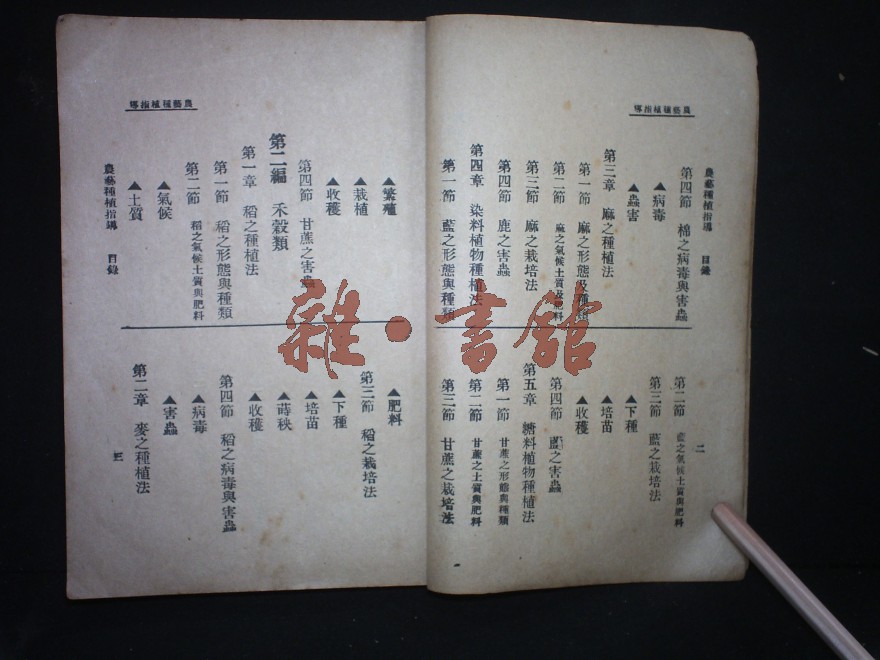 農藝種植指導
農藝種植指導 目錄
二
第四節 棉之病毒與害蟲
▲病毒
▲蟲害
第三章 麻之種植法
第一節 麻之形態及種類
第二節 麻之氣候土質及肥料
第三節 麻之栽培法
第四節 鹿之害蟲
第四章 染料植物種植法
第一節 藍之形態與種類
第二節 藍之氣候土質與肥料
第三節 藍之栽培法
▲下種
▲培苗
▲收穫
第四節 藍之害蟲
第五章 糖料植物種植法
第一節 甘蔗之形態與種類
第二節 甘蔗之土質與肥料
第三節 甘蔗之栽培法
▲繁殖
▲栽植
▲收穫
第四節 甘蔗之害蟲
第二編 禾穀類
第一章 稻之種植法
第一節 稻之形態與種類
第二節 稻之氣候土質與肥料
▲氣候
▲土質
▲肥料
第三節 稻之栽培法
▲下種
▲培苗
▲蒔秧
▲收穫
第四節 稻之病毒與害蟲
▲病毒
▲害蟲
第二章 麥之種植法
農藝種植指導
農藝種植指導 目錄
三
雜·書館